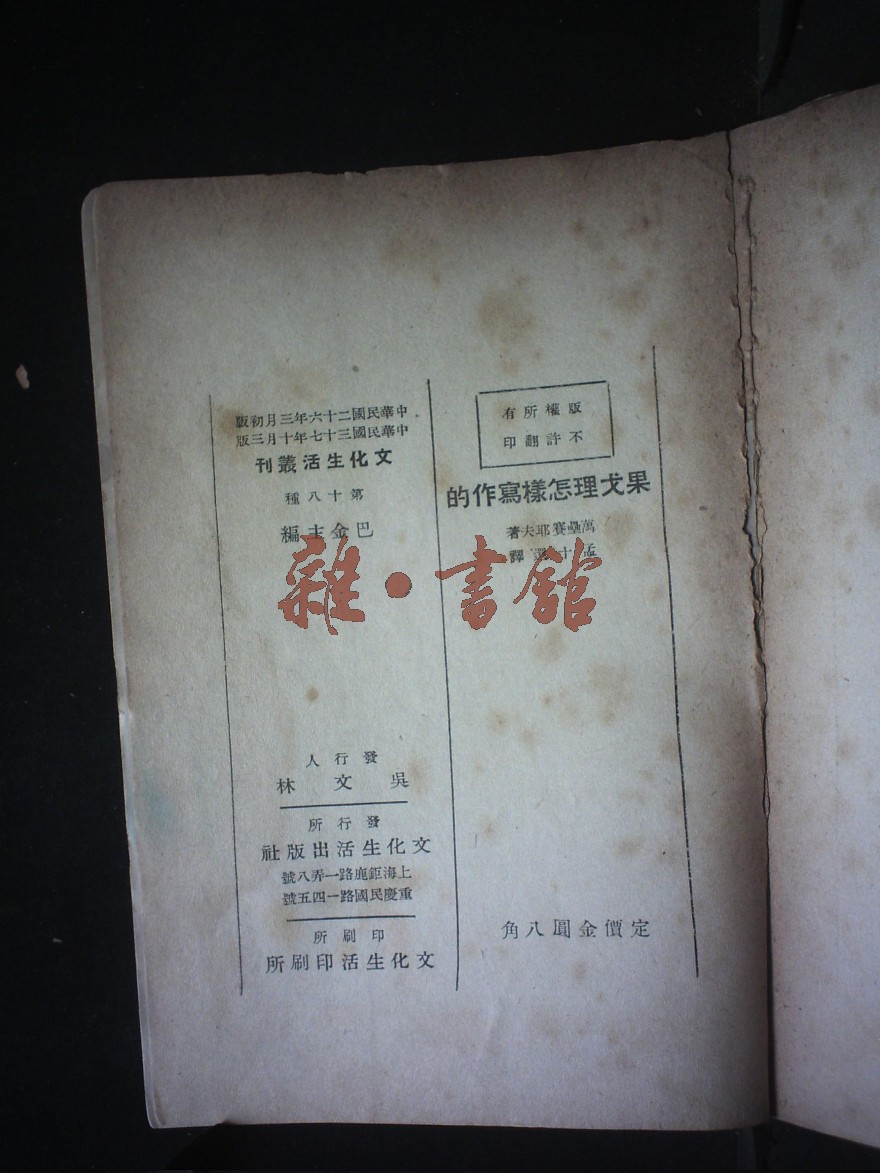 版權所有
不許翻印
果戈理怎樣寫作的
萬壘賽耶夫著
孟十還譯
定價金圓八角
中華民國二十六年三月初版
中華民國三十七年十月三版
文化生活叢刊
第十八種
巴金主編
發行人
吳文林
發行所
文化生活出版社
上海鉅鹿路一弄八號
重慶民國路一四五號
印刷所
文化生活印刷所
雜·書館